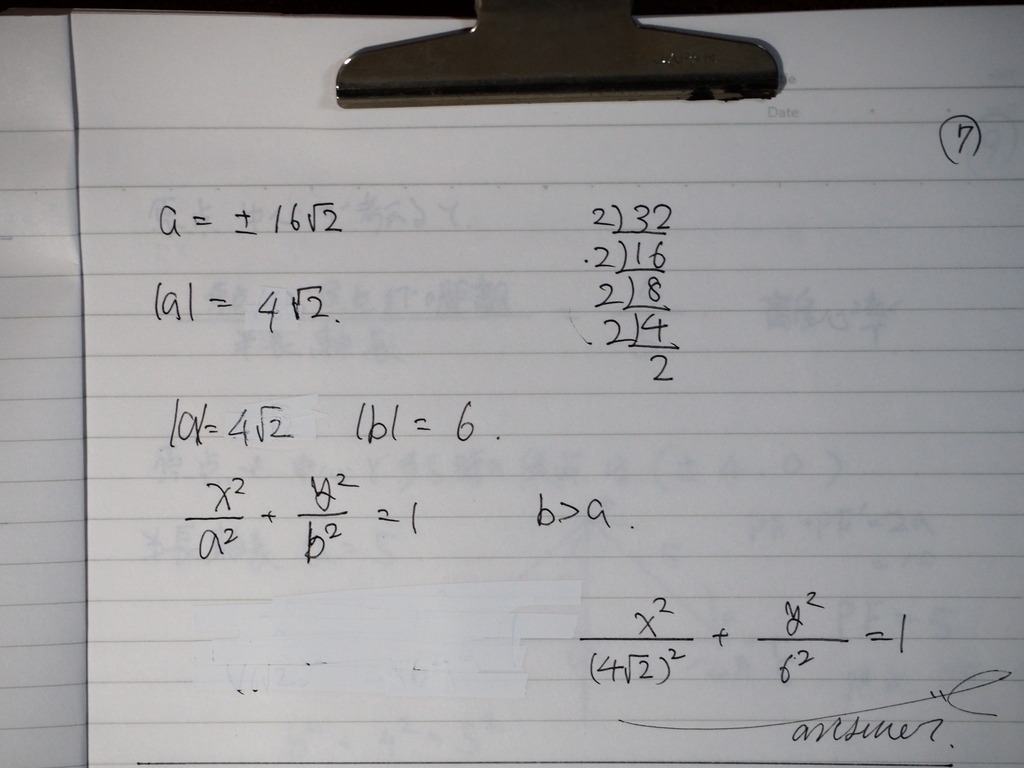 Date
⑦
a = ± 16√2
2)32
2)16
2)8
2)4
2
|a| = 4√2.
|a|= 4√2 |b| = 6.
x²/a² + y²/b² = 1 b>a.
x²/(4√2)² + y²/6² = 1
answer.